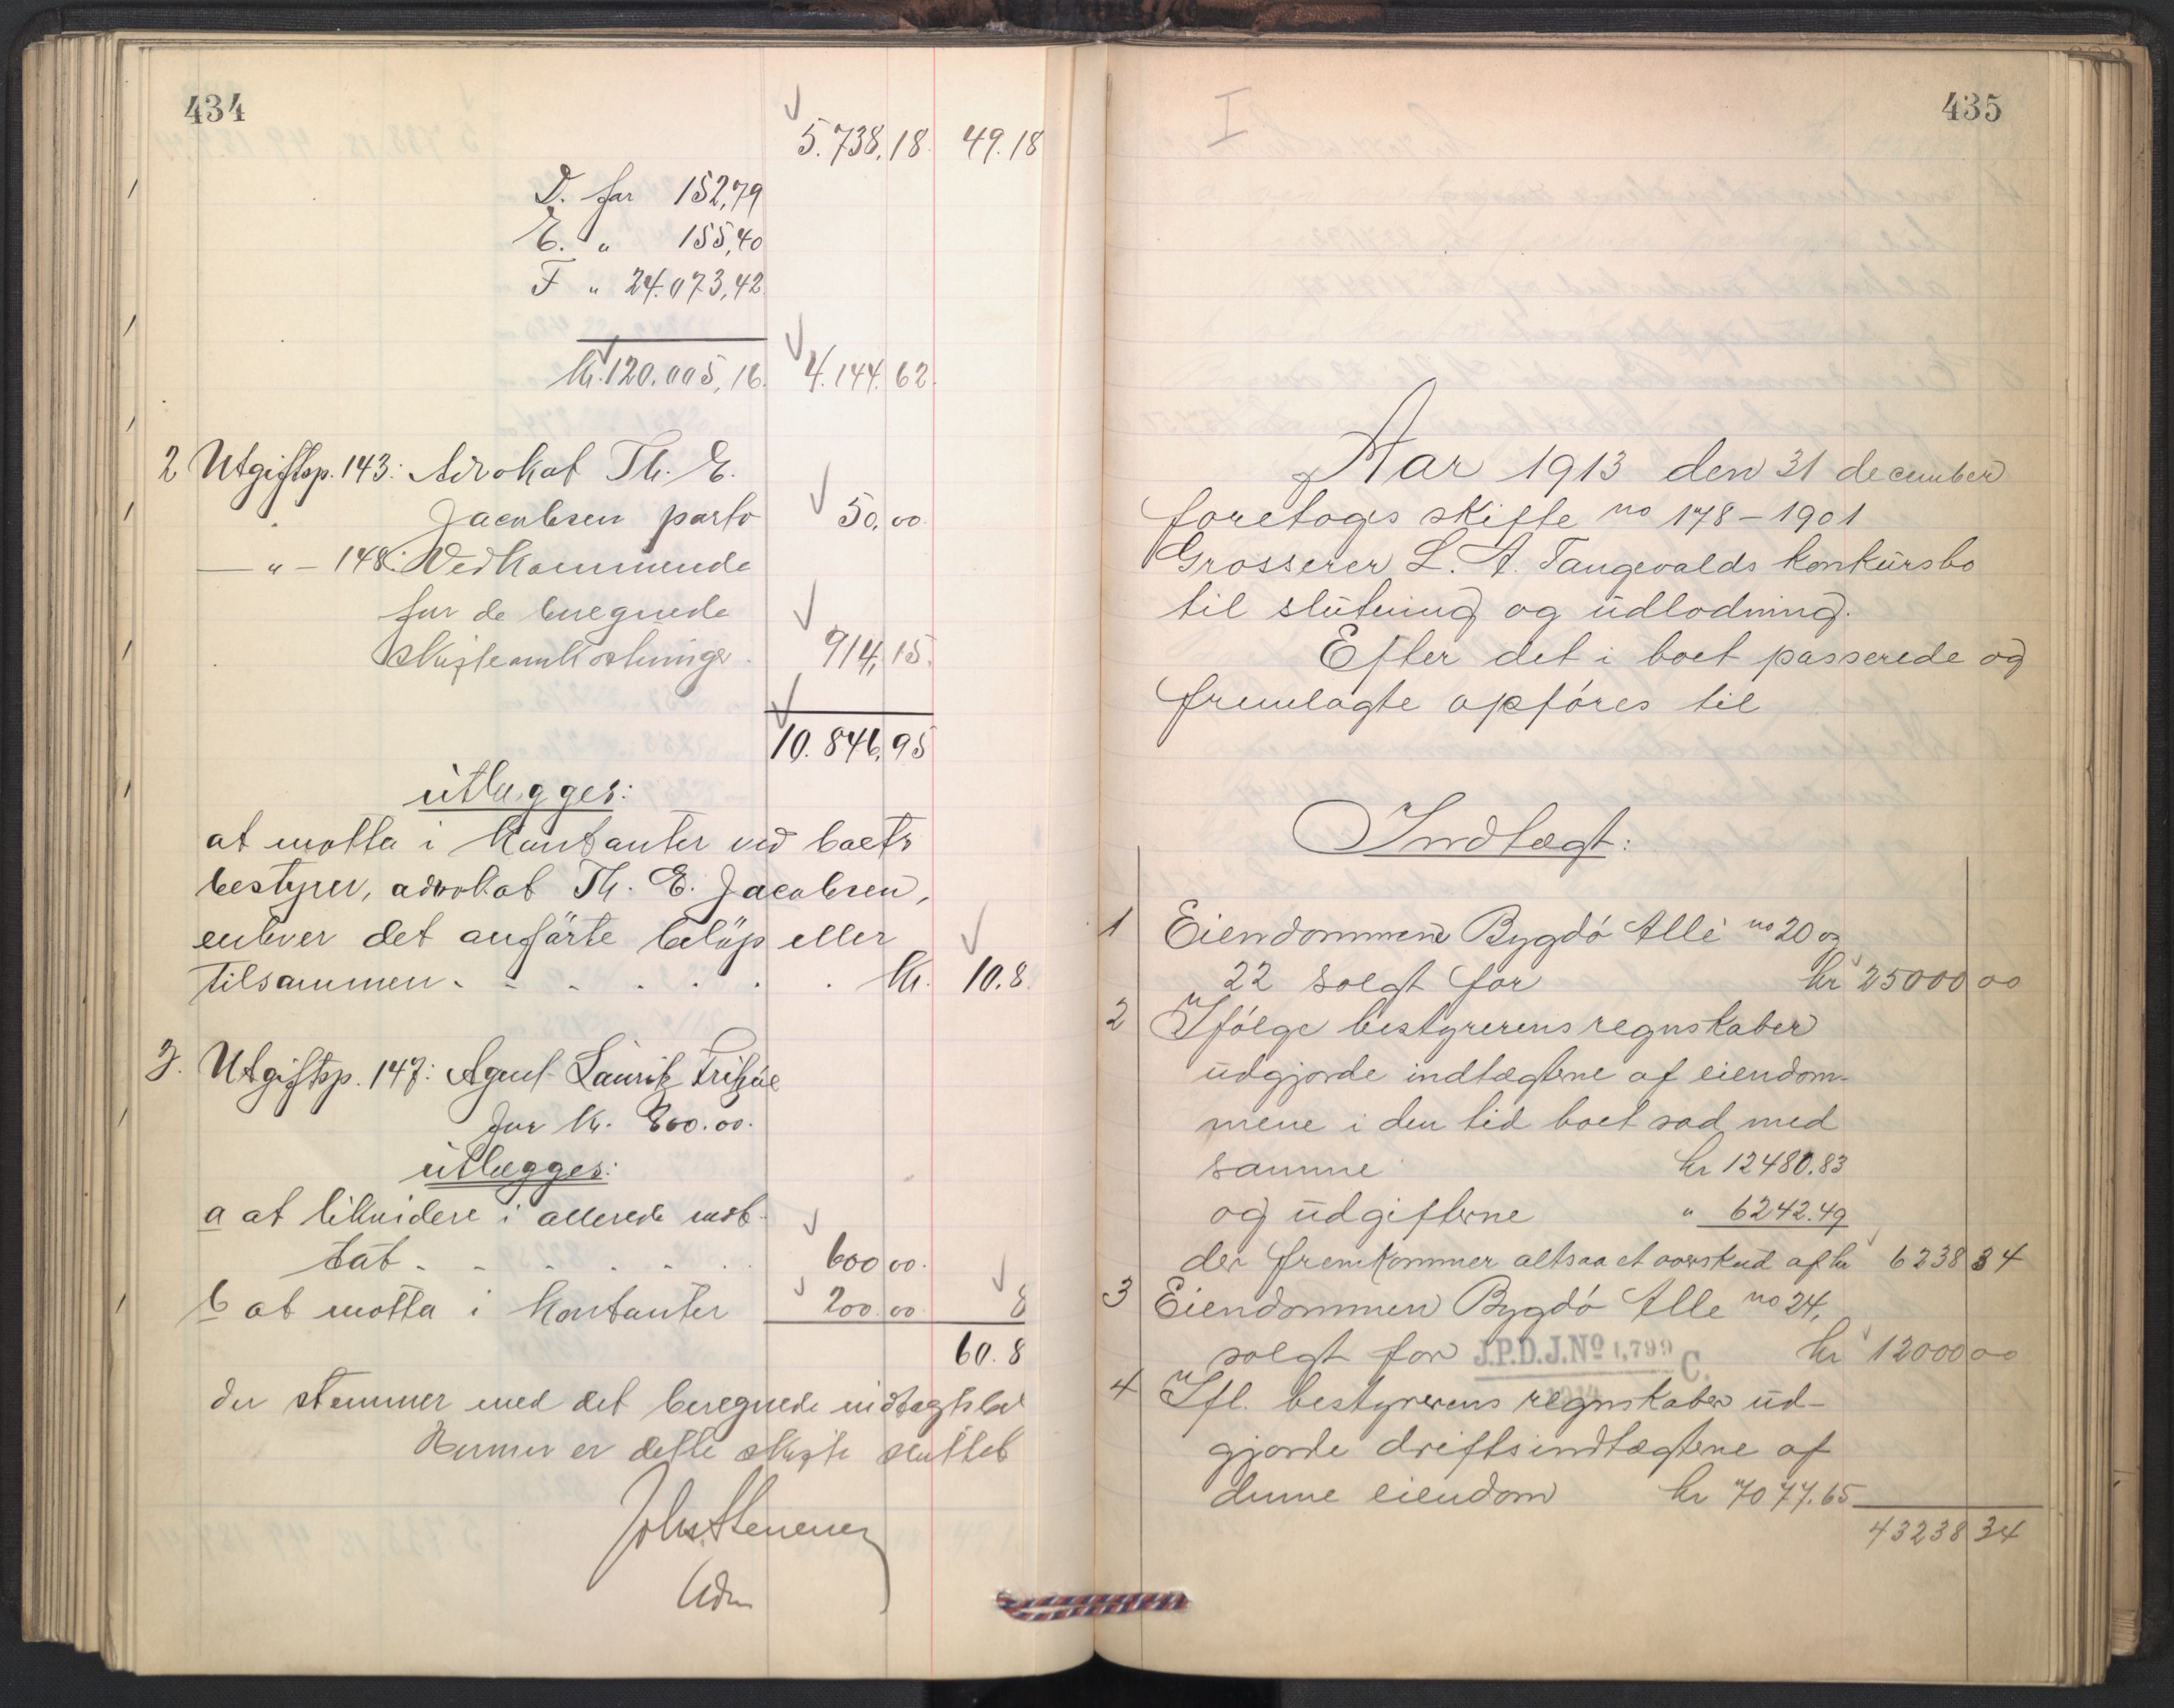 434
5.738,18 49.18
D. for 152,79
E. " 155,40
F " 24.073,42
Kr. 120.005,16. 4.144.62
2 Utgiftsp. 143: Advokat Th. E.
Jacobsen porto 50,00
— " — 148: Vedkommende
for de beregnede
skifteomkostninger 914,15.
10.846,95
utlægges:
at motta i kontanter ved boets
bestyrer, advokat Th. E. Jacobsen,
enhver det anførte beløp eller
tilsammen . . . . . . . Kr. 10.8
3. Utgiftsp. 147: Agent Lauritz
for Kr. 800.00.
utlægges:
a at likvidere i allerede mot-
tat . . . . . . 600 00.
b at motta i kontanter 200.00 8
60.8
der stemmer med det beregnede
Hermed er dette skifte sluttet
435
I
Aar 1913 den 31 december
foretoges skifte no 178 – 1901
Grosserer L. A. Tangevalds konkursbo
til slutning og udlodning.
Efter det i boet passerede og
fremlagte opføres til
Indtægt:
1 Eiendommene Bygdø Allé no 20 og
22 solgt for kr 25000 00
2 Ifølge bestyrerens regnskaber
udgjorde indtægterne af eiendom-
mene i den tid boet sad med
samme kr 12480.83
og udgifterne " 6242.49
der fremkommer altsaa et overskud af kr 6238 34
3 Eiendommen Bygdø Alle no 24,
solgt for kr 12000 00
J.P.D.J.No 1,799 C.
4 Ifl. bestyrerens regnskaber ud-
gjorde driftsindtægterne af
denne eiendom kr 7077.65
43238 34